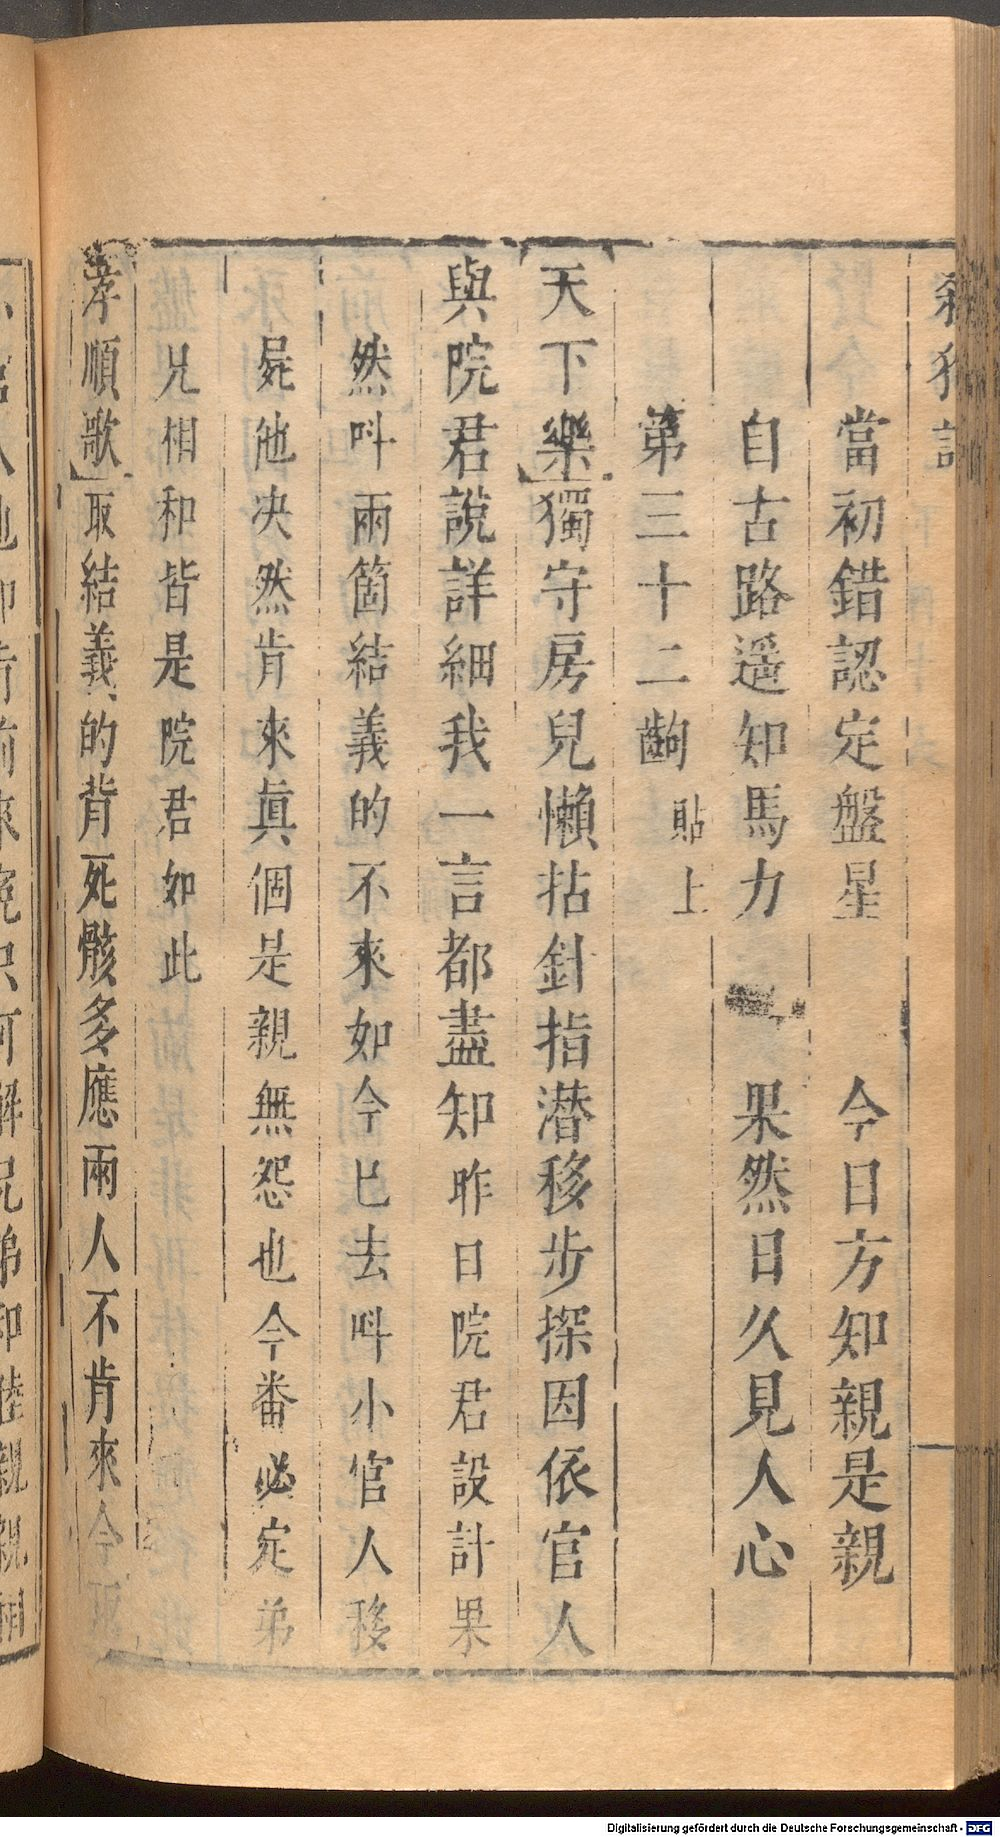 殺狗記
當初錯認定盤星　今日方知親是親
自古路遥知馬力　果然日久見人心
第三十二齣　貼上
天下樂獨守房兒懶拈針指潜移步探因依官人
與院君說詳細我一言都盡知昨日院君設計果
然呌兩箇結義的不來如今巳去呌小官人移
屍他决然肯來眞個是親無怨也今番必定弟
兄相和皆是院君如此
孝順歌取結義的背死骸多應兩人不肯來今
Digitalisierung gefördert durch die Deutsche Forschungsgemeinschaft - DFG